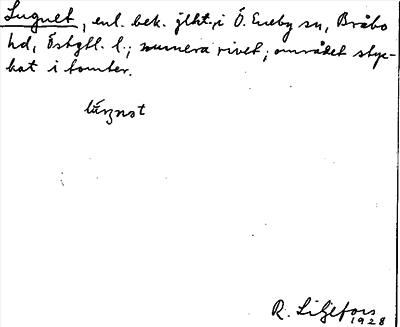 Lugnet, enl. bek. jlht, i Ö. Eneby sn, Bråbo
hd, Östgtl. l.; numera rivet; området styc-
kat i tomter.
R. Liljefors
1928